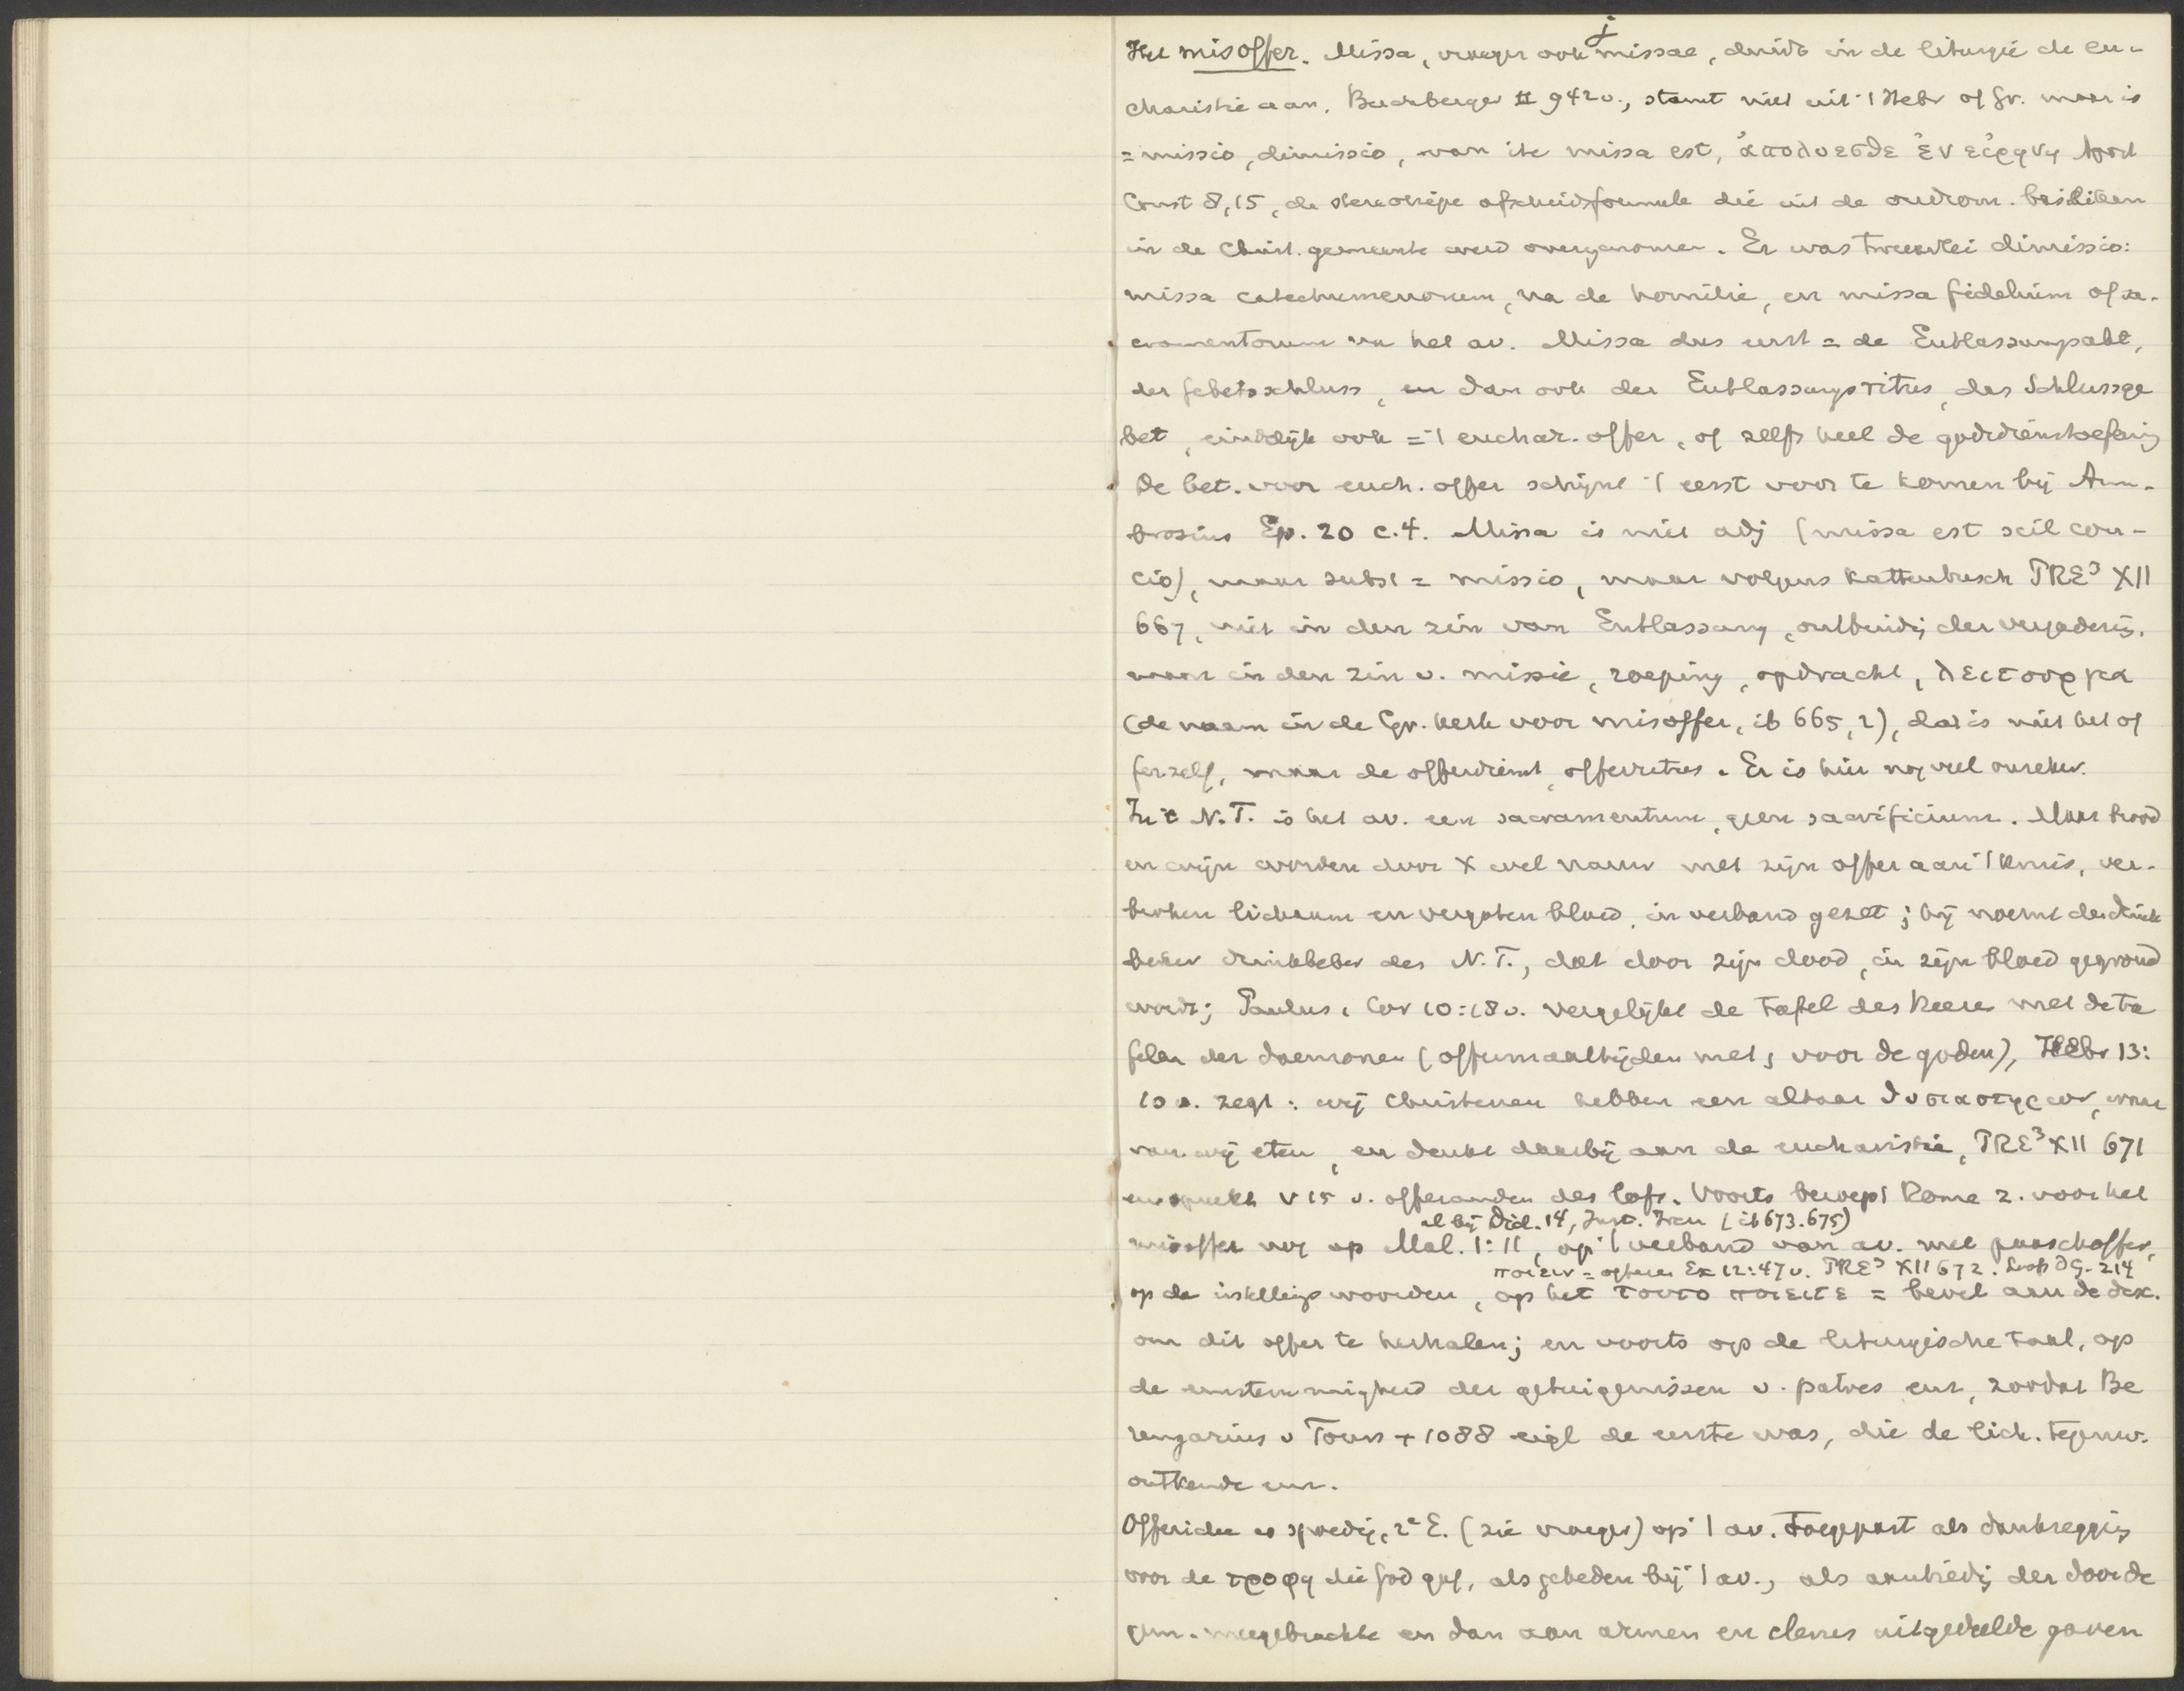 j
Het misoffer. Missa, vroeger ook missae, duidt in de liturgie de eu-
charistie aan, Buchberger II 942 v., stamt niet uit 't Hebr of Gr. maar is
= missio, dimissio, van ite missa est, ἀπολυεσθε ἐν εἰρηνῃ Apost
Const 8,15, de stereotiepe afscheidsformule die uit de oudrom. basiliken
in de Christ. gemeente werd overgenomen. Er was tweeërlei dimissio:
missa catechumenorum, na de homilie, en missa fidelium of sa-
cramentorum na het av. Missa dus eerst = de Entlassungsakt,
der Gebetsschluss, en dan ook der Entlassungsritus, das Schlussge
bet, eindelijk ook = 't euchar. offer, of zelfs heel de godsdienstoefening
De bet. voor euch. offer schijnt 't eerst voor te komen bij Am-
brosius Ep. 20 c.4. Missa is niet adj (missa est scil con-
cio), maar subst = missio, maar volgens Kattenbusch PRE³ XII
667, niet in den zin van Entlassung, ontbinding der vergadering,
maar in den zin v. missie, roeping, opdracht, λειτουργια
(de naam in de Gr. kerk voor misoffer, ib 665, 2), dat is niet het of
fer zelf, maar de offerdienst, offerritus. Er is hier nog veel onzeker.
In 't N.T. is het av. een sacramentum, geen sacrificium. Maar brood
en wijn worden door X wel nauw met zijn offer aan 't kruis, ver-
broken lichaam en vergoten bloed, in verband gezet; hij noemt den drink
beker drinkbeker des N.T., dat door zijn dood, in zijn bloed gegrond
wordt; Paulus 1 Cor 10:18 v. vergelijkt de tafel des Heeren met de ta
felen der daemonen (offermaaltijden met, voor de goden), Hebr 13:
10 v. zegt: wij Christenen hebben een altaar θυσιαστηριον, waar
van wij eten, en denkt daarbij aan de eucharistie, PRE³ XII 671
en spreekt v 15 v. offeranden des lofs. Voorts beroept Rome z. voor het
al bij Did. 14, Just. Iren (ib 673.675)
misoffer nog op Mal. 1:11, op 't verband van av. met paaschoffer,
ποιειν = offeren Ex 12:47 v. PRE³ XII 672. Loofs DG. 214
op de instellingswoorden, op het τουτο ποιειτε = bevel aan de disc.
om dit offer te herhalen; en voorts op de liturgische taal, op
de eenstemmigheid der getuigenissen v. patres enz, zoodat Be
rengarius v Tours + 1088 eigl de eerste was, die de lich. tegenw.
ontkende enz.
Offeridee is spoedig, 2e E. (zie vroeger) op 't av. toegepast als dankzegging
voor de τροφη die God gaf, als gebeden bij 't av., als aanbieding der door de
gem. meegebrachte en dan aan armen en clerus uitgedeelde gaven